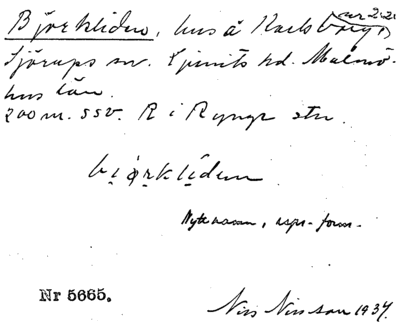 Björkliden, hus å Karlsborg,
Sjörups sn. Ljunits hd. Malmö-
hus län.
200 m. SSV. R i Rynge stn.
bi̯ǫrklíden
Nytt namn, uspr.-form.
Nr 5665.
Nils Nilsson 1934.